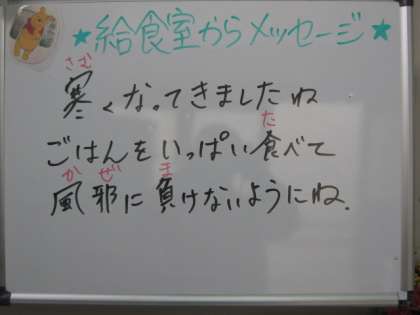 ★給食室からメッセージ★
さむ
寒くなってきましたね
た
ごはんをいっぱい食べて
かぜ ま
風邪に負けないようにね.